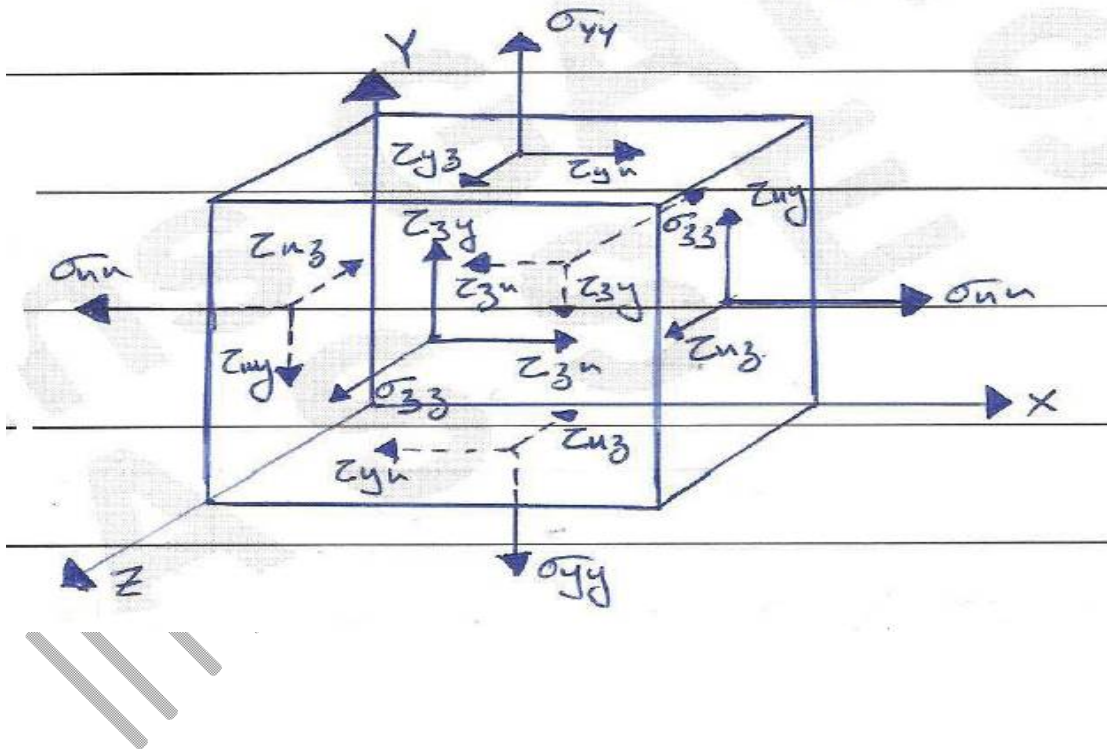 σyy
Y
τyz
τyx
τzy
σzz
τxy
τxz
σxx
τzx
τzy
σxx
τxy
τzx
τxz
σzz
X
τxz
τyx
σyy
Z